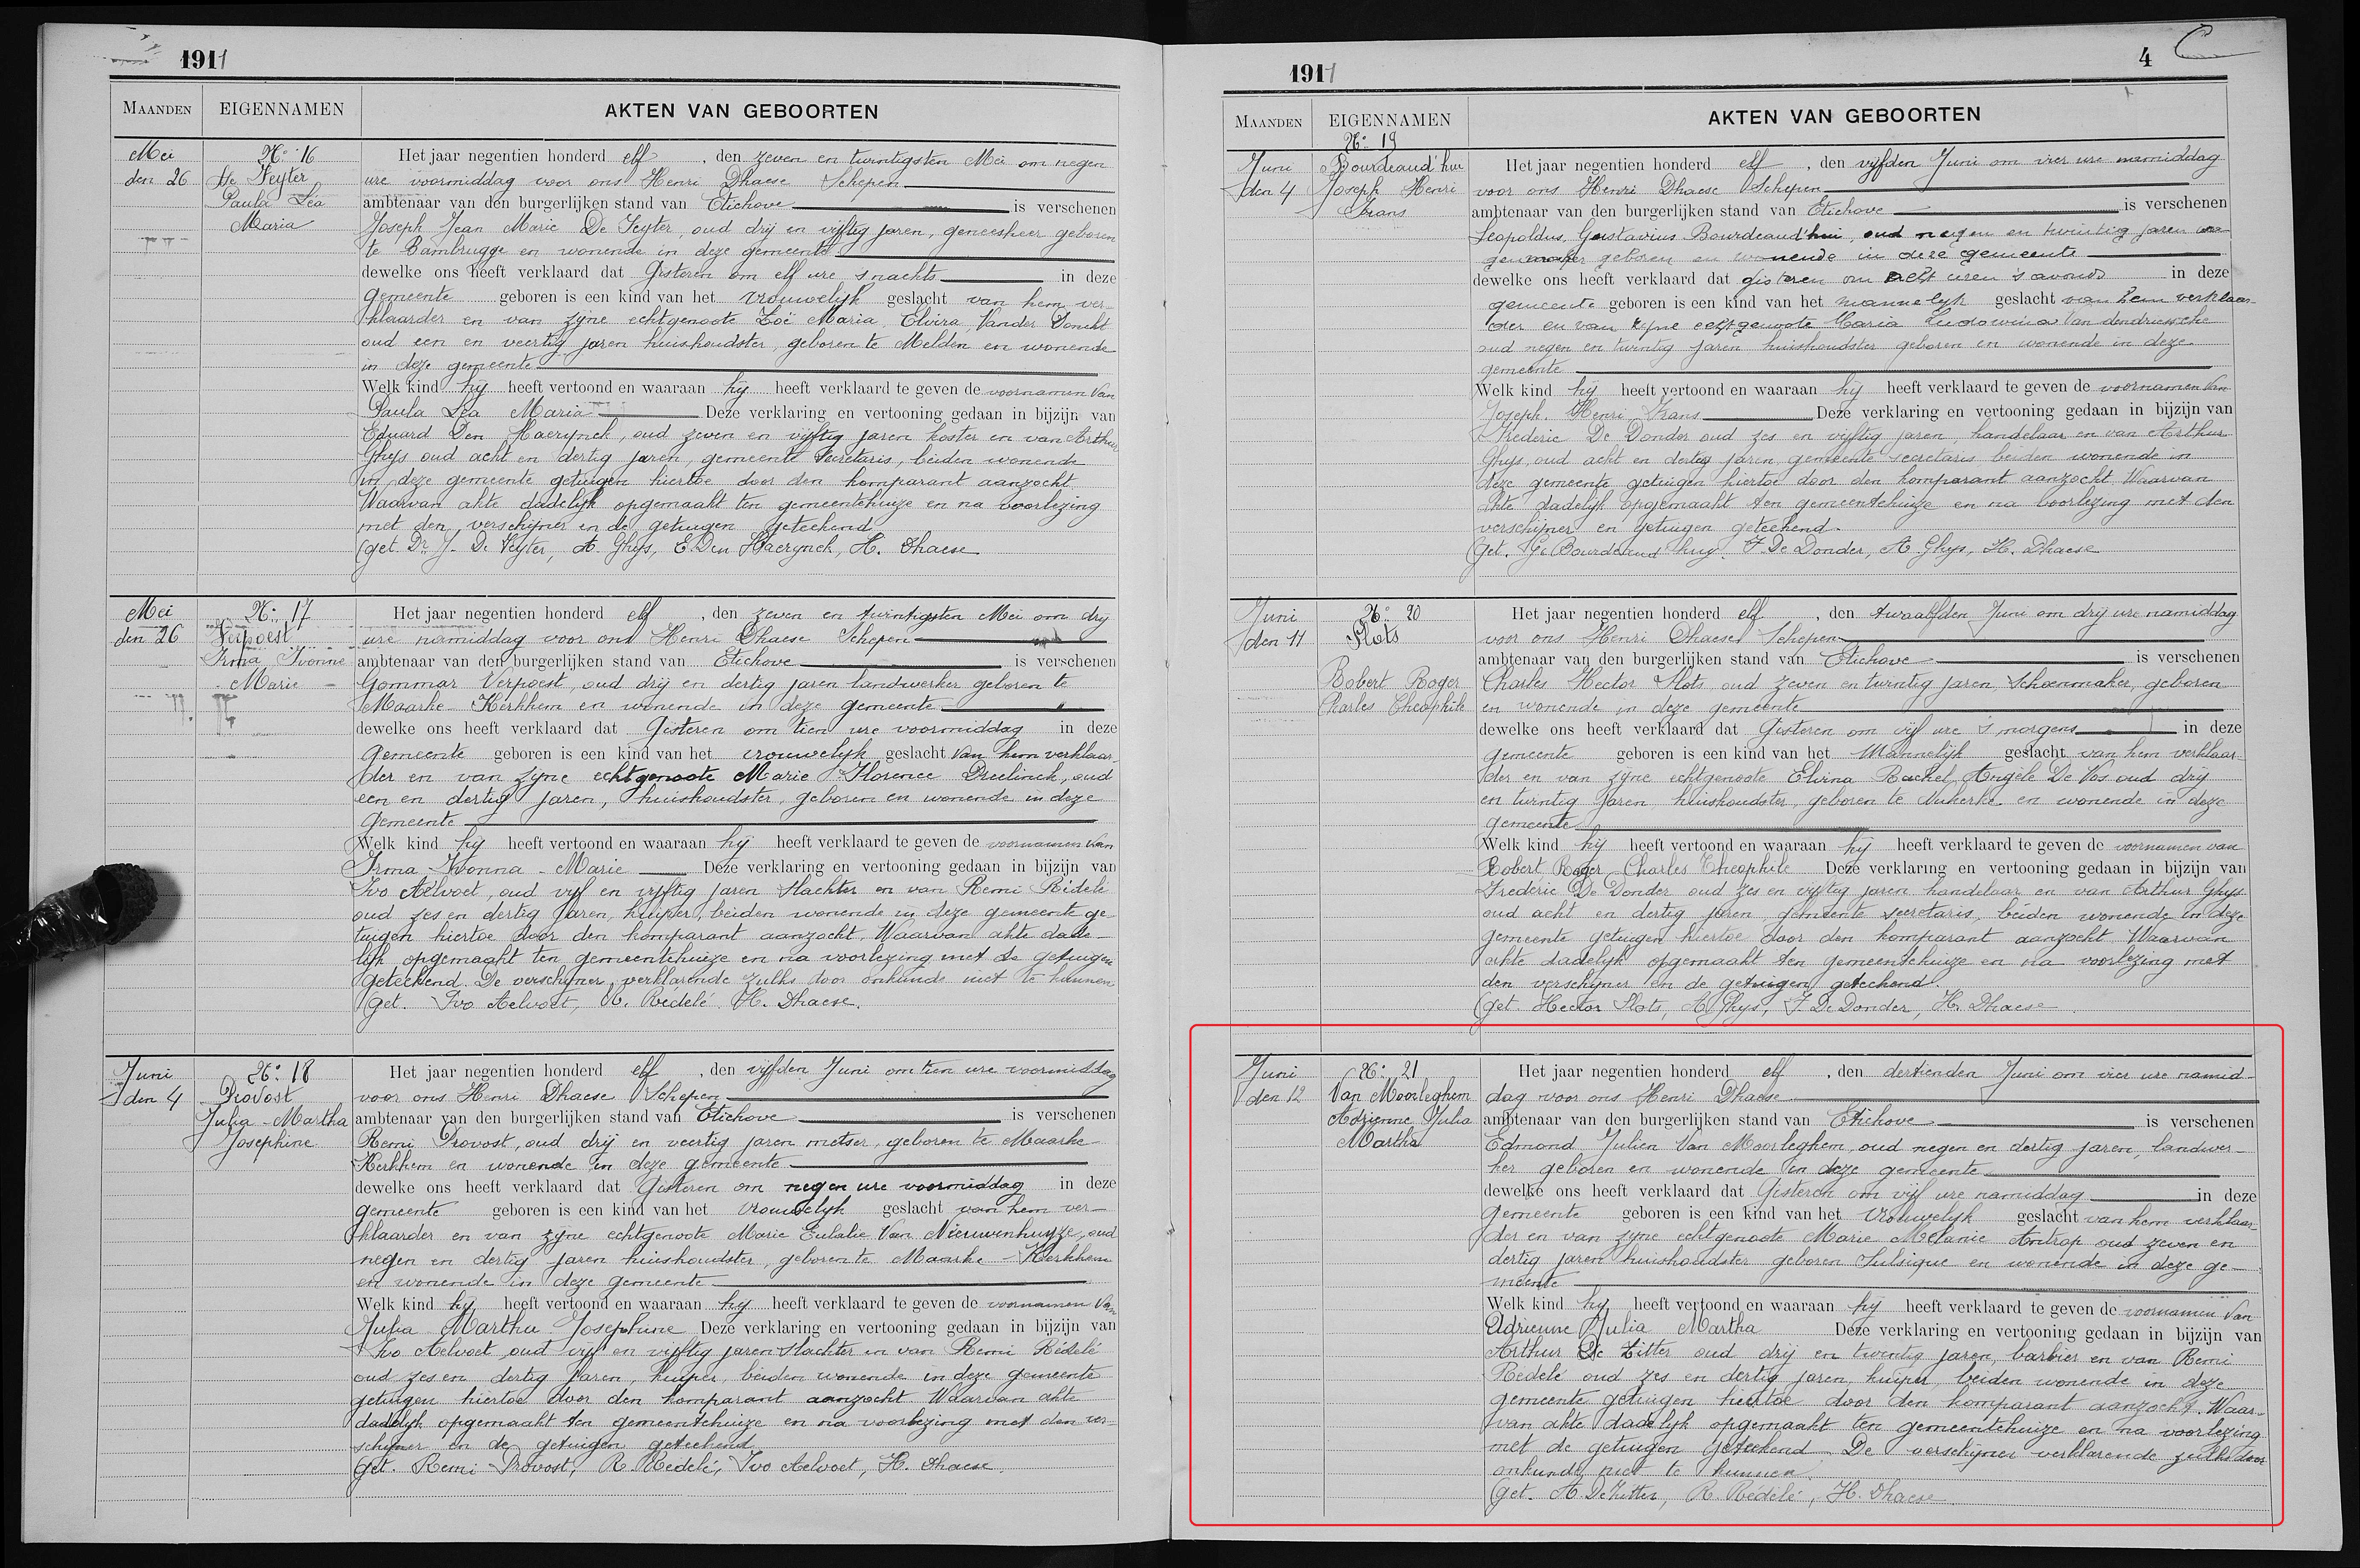 1911
MAANDEN
EIGENNAMEN
AKTEN VAN GEBOORTEN
Mei
den 26
N° 16
De Feyter
Paula Léa
Maria
Het jaar negentien honderd elf, den zeven en twintigsten Mei om negen
ure voormiddag voor ons Henri Dhaese Schepen
ambtenaar van den burgerlijken stand van Etichove is verschenen
Joseph Jean Marie De Feyter, oud drij en vijftig jaren, geneesheer geboren
te Bambrugge en wonende in deze gemeente
dewelke ons heeft verklaard dat Gisteren om elf ure s'nachts in deze
Gemeente geboren is een kind van het vrouwelijk geslacht van hem ver-
klaarder en van zijne echtgenoote Zoë Maria Elvira Vander Donckt
oud een en veertig jaren huishoudster, geboren te Melden en wonende
in deze gemeente
Welk kind hij heeft vertoond en waaraan hij heeft verklaard te geven de voornamen van
Paula Léa Maria Deze verklaring en vertooning gedaan in bijzijn van
Eduard Den Haerynck, oud zeven en vijftig jaren koster en van Arthur
Ghijs oud acht en dertig jaren, gemeente secretaris, beiden wonende
in deze gemeente getuigen hiertoe door den komparant aanzocht
Waarvan akte dadelijk opgemaakt ten gemeentehuize en na voorlezing
met den verschijner en de getuigen geteekend
(get. Dr J. De Feyter, A. Ghijs, E. Den Haerynck, H. Dhaese
Mei
den 26
N° 17
Verpoest
Irma Ivonne
Marie
Het jaar negentien honderd elf, den zeven en twintigsten Mei om drij
ure namiddag voor ons Henri Dhaese Schepen
ambtenaar van den burgerlijken stand van Etichove is verschenen
Gommar Verpoest, oud drij en dertig jaren landwerker geboren te
Maarke-Kerkhem en wonende in deze gemeente
dewelke ons heeft verklaard dat Gisteren om tien ure voormiddag in deze
Gemeente geboren is een kind van het vrouwelijk geslacht van hem verklaar-
der en van zijne echtgenoote Marie Florence Dreelinck, oud
een en dertig jaren, huishoudster, geboren en wonende in deze
Gemeente
Welk kind hij heeft vertoond en waaraan hij heeft verklaard te geven de voornamen van
Irma Ivonna - Marie Deze verklaring en vertooning gedaan in bijzijn van
Ivo Aelvoet, oud vijf en vijftig jaren slachter en van Remi Rédelé
oud zes en dertig jaren, kuiper, beiden wonende in deze gemeente ge-
tuigen hiertoe door den komparant aanzocht. Waarvan akte dade-
lijk opgemaakt ten gemeentehuize en na voorlezing met de getuigen
geteekend. De verschijner, verklarende zulks door onkunde niet te kunnen
(get. Ivo Aelvoet, R. Rédelé. H. Dhaese.
Juni
den 4
N° 18
Provost
Julia-Martha
Josephine
Het jaar negentien honderd elf, den vijfden Juni om tien ure voormiddag
voor ons Henri Dhaese Schepen
ambtenaar van den burgerlijken stand van Etichove is verschenen
Remi Provost, oud drij en veertig jaren metser, geboren te Maarke-
Kerkhem en wonende in deze gemeente
dewelke ons heeft verklaard dat Gisteren om negen ure voormiddag in deze
gemeente geboren is een kind van het vrouwelijk geslacht van hem ver-
klaarder en van zijne echtgenoote Marie Eulalie Van Nieuwenhuyze, oud
negen en dertig jaren huishoudster, geboren te Maarke-Kerkhem
en wonende in deze gemeente
Welk kind hij heeft vertoond en waaraan hij heeft verklaard te geven de voornamen van
Julia Martha Josephine Deze verklaring en vertooning gedaan in bijzijn van
Ivo Aelvoet, oud vijf en vijftig jaren slachter en van Remi Rédelé
oud zes en dertig jaren, kuiper, beiden wonende in deze gemeente
getuigen hiertoe door den komparant aanzocht Waarvan akte
dadelijk opgemaakt ten gemeentehuize en na voorlezing met den ver-
schijner en de getuigen geteekend
get. Remi Provost, R. Rédelé, Ivo Aelvoet, H. Dhaese.
1911
4
MAANDEN
EIGENNAMEN
AKTEN VAN GEBOORTEN
Juni
den 4
N° 19
Bourdeaud'hui
Joseph Henri
Frans
Het jaar negentien honderd elf, den vijfden Juni om vier ure namiddag
voor ons Henri Dhaese Schepen
ambtenaar van den burgerlijken stand van Etichove is verschenen
Leopoldus, Gustavius Bourdeaud'hui, oud negen en twintig jaren wa-
genmaker geboren en wonende in deze gemeente
dewelke ons heeft verklaard dat gisteren om acht uren 's avonds in deze
gemeente geboren is een kind van het mannelijk geslacht van hem verklaar-
der en van zijne echtgenoote Maria Ludowina Van dendriessche
oud negen en twintig jaren huishoudster geboren en wonende in deze
gemeente
Welk kind hij heeft vertoond en waaraan hij heeft verklaard te geven de voornamen van
Joseph Henri Frans Deze verklaring en vertooning gedaan in bijzijn van
Frederic De Donder oud zes en vijftig jaren, handelaar en van Arthur
Ghijs, oud acht en dertig jaren, gemeente secretaris beiden wonende in
deze gemeente getuigen hiertoe door den komparant aanzocht Waarvan
akte dadelijk opgemaakt ten gemeentehuize en na voorlezing met den
verschijner en getuigen geteekend.
(get. G. Bourdeaud'huy. F. De Donder, A. Ghijs, H. Dhaese
Juni
den 11
N° 20
Flots
Robert Roger
Charles Theophile
Het jaar negentien honderd elf, den twaalfden Juni om drij ure namiddag
voor ons Henri Dhaese Schepen
ambtenaar van den burgerlijken stand van Etichove is verschenen
Charles Hector Flots, oud zeven en twintig jaren, Schoenmaker, geboren
en wonende in deze gemeente
dewelke ons heeft verklaard dat Gisteren om vijf ure 's morgens in deze
Gemeente geboren is een kind van het Mannelijk geslacht van hem verklaar-
der en van zijne echtgenoote Elvina Rachel Angèle De Vos oud drij
en twintig jaren, huishoudster, geboren te Nukerke en wonende in deze
gemeente
Welk kind hij heeft vertoond en waaraan hij heeft verklaard te geven de voornamen van
Robert Roger Charles Theophile Deze verklaring en vertooning gedaan in bijzijn van
Frederic De Donder oud zes en vijftig jaren handelaar en van Arthur Ghijs
oud acht en dertig jaren, gemeente secretaris, beiden wonende in deze
gemeente getuigen hiertoe door den komparant aanzocht Waarvan
akte dadelijk opgemaakt ten gemeentehuize en na voorlezing met
den verschijner en de getuigen geteekend.
(get. Hector Flots, A. Ghijs, F. De Donder, H. Dhaese.
Juni
den 12
N° 21
Van Moorleghem
Adrienne Julia
Martha
Het jaar negentien honderd elf, den dertienden Juni om vier ure namid-
dag voor ons Henri Dhaese
ambtenaar van den burgerlijken stand van Etichove is verschenen
Edmond Julien Van Moorleghem, oud negen en dertig jaren, landwer-
ker geboren en wonende in deze gemeente
dewelke ons heeft verklaard dat Gisteren om vijf ure namiddag in deze
Gemeente geboren is een kind van het vrouwelijk geslacht van hem verklaar-
der en van zijne echtgenoote Marie Melanie Antrop oud zeven en
dertig jaren huishoudster geboren Sulsique en wonende in deze ge-
meente
Welk kind hij heeft vertoond en waaraan hij heeft verklaard te geven de voornamen van
Adrienne Julia Martha Deze verklaring en vertooning gedaan in bijzijn van
Arthur De Zitter oud drij en twintig jaren, barbier en van Remi
Rédelé oud zes en dertig jaren, kuiper, beiden wonende in deze
gemeente getuigen hiertoe door den komparant aanzocht. Waar-
van akte dadelijk opgemaakt ten gemeentehuize en na voorlezing
met de getuigen geteekend. De verschijner verklarende zulks door
onkunde niet te kunnen.
(get. A. De Zitter, R. Rédelé, H. Dhaese.